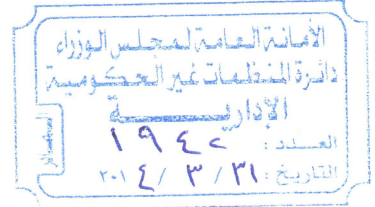 الأمانة العامة لمجلس الوزراء
دائرة المنظمات غير الحكومية
الإدارية
العدد : ١٩٤٢
التاريخ : ٣١ / ٣ / ٢٠١٤